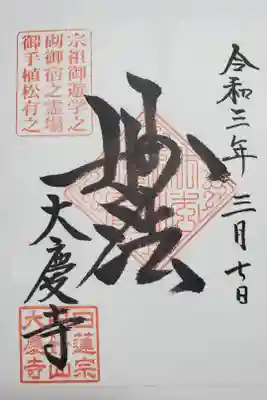 令和三年三月七日
妙法
大慶寺
宗祖御遊学之
砌御宿之霊場
御手植松有之
日蓮宗
大慶寺